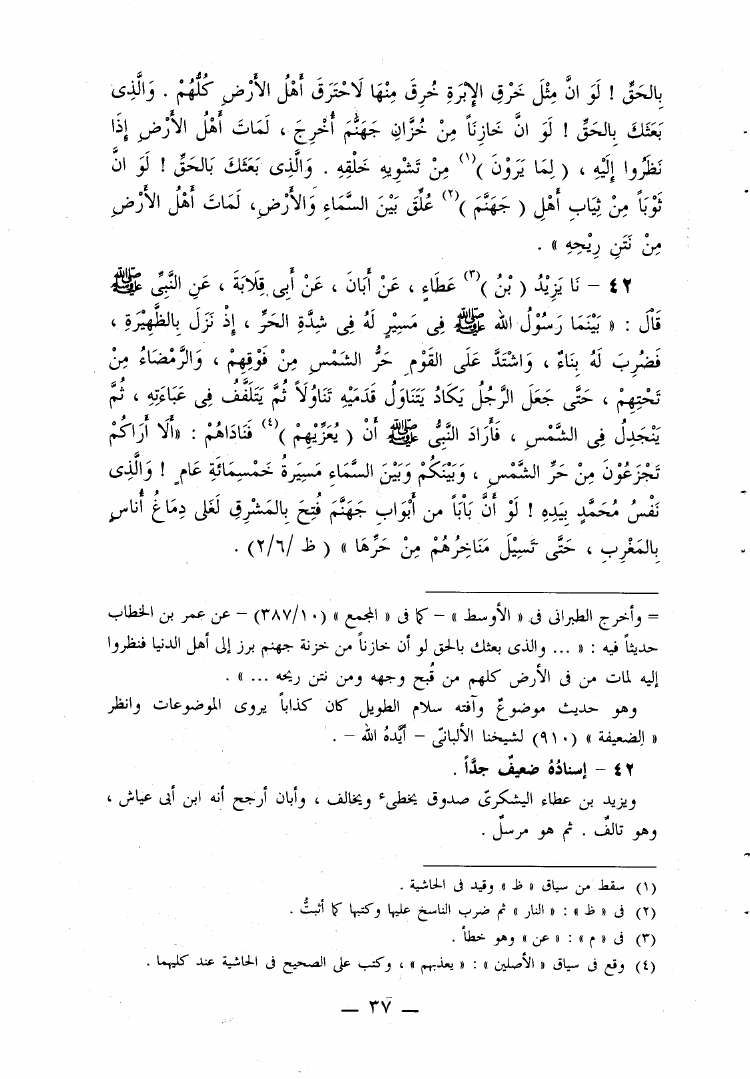 بِالحَقِّ ! لَوَ انَّ مِثْلَ خَرْقِ الإِبْرَةِ خُرِقَ مِنْهَا لَاحْتَرَقَ أَهْلُ الأَرْضِ كُلُّهُمْ . وَالَّذِى
بَعَثَكَ بِالحَقِّ ! لَوَ انَّ خَازِناً مِنْ خُزَّانِ جَهَنَّمَ أُخْرِجَ ، لَمَاتَ أَهْلُ الأَرْضِ إِذَا
نَظَرُوا إِلَيْهِ ، ( لِمَا يَرَوْنَ )(١) مِنْ تَشْوِيهِ خَلْقِهِ . وَالَّذِى بَعَثَكَ بَالحَقِّ ! لَوَ انَّ
ثَوْبَاً مِنْ ثِيَابِ أَهْلِ ( جَهَنَّمَ )(٢) عُلِّقَ بَيْنَ السَّمَاءِ وَالأَرْضِ، لَمَاتَ أَهْلُ الأَرْضِ
مِنْ نَتَنِ رِيْحِهِ » .
٤٢ – نَا يَزِيْدُ ( بْنُ )(٣) عَطَاءٍ ، عَنْ أَبَانَ ، عَنْ أَبِى قِلَابَةَ ، عَنِ النَّبِىِّ ﷺ
قَالَ : « بَيْنَمَا رَسُوْلُ الله ﷺ فِى مَسِيْرٍ لَهُ فِى شِدَّةِ الحَرِّ ، إِذْ نَزَلَ بِالظَّهِيْرَةِ ،
فَضُرِبَ لَهُ بِنَاءٌ ، وَاشْتَدَّ عَلَى القَوْمِ حَرُّ الشَمْسِ مِنْ فَوْقِهِمْ ، وَالرَّمْضَاءُ مِنْ
تَحْتِهِمْ ، حَتَّى جَعَلَ الرَّجُلُ يَكَادُ يَتَنَاوَلُ قَدَمَيْهِ تَنَاوُلَاً ثُمَّ يَتَلَفَّفُ فِى عَبَاءَتِهِ ، ثُمَّ
يَنْجَدِلُ فِى الشَّمْسِ ، فَأَرَادَ النَّبِىُّ ﷺ أَنْ ( يُعَزِّيْهِمْ )(٤) فَنَادَاهُمْ : «أَلَا أَرَاكُمْ
تَجْزَعُوْنَ مِنْ حَرِّ الشَّمْسِ ، وَبَيْنَكُمْ وَبَيْنَ السَّمَاءِ مَسِيَرةُ خَمْسِمَائَةِ عَامٍ ! وَالَّذِى
نَفْسُ مُحَمَّدٍ بِيَدِهِ ! لَوْ أَنَّ بَاْبَاً من أَبْوَابِ جَهَنَّمَ فُتِحَ بِالمَشْرِقِ لَغَلى دِمَاغُ أُناسٍ
بِالمَغْرِبِ ، حَتَّى تَسِيْلَ مَنَاخِرُهُمْ مِنْ حَرِّهَا » ( ظ /٢/٦) .
= وأخرج الطبرانى فى « الأوسط » – كما فى « المجمع » (٣٨٧/١٠) – عن عمر بن الخطاب
حديثاً فيه : « ... والذى بعثك بالحق لو أن خازناً من خزنة جهنم برز إلى أهل الدنيا فنظروا
إليه لمات من فى الأرض كلهم من قُبح وجهه ومن نتن ريحه ... » .
وهو حديث موضوعٌ وآفته سلام الطويل كان كذاباً يروى الموضوعات وانظر
« الضعيفة » (٩١٠) لشيخنا الألبانىّ – أيَّدهُ الله – .
٤٢ – إسنادُهُ ضعيفٌ جدَّاً .
ويزيد بن عطاء اليشكرىّ صدوق يخطىء ويخالف ، وأبان أرجح أنه ابن أبى عياش ،
وهو تالفٌ . ثم هو مرسلٌ .
(١) سقط من سياق « ظ » وقيد فى الحاشية .
(٢) فى « ظ » : « النار » ثم ضرب الناسخ عليها وكتبها كما أثبتُّ .
(٣) فى « م » : « عن » وهو خطأ .
(٤) وقع فى سياق « الأصلين » : « يعذبهم » ، وكتب على الصحيح فى الحاشية عند كليهما .
— ٣٧ —